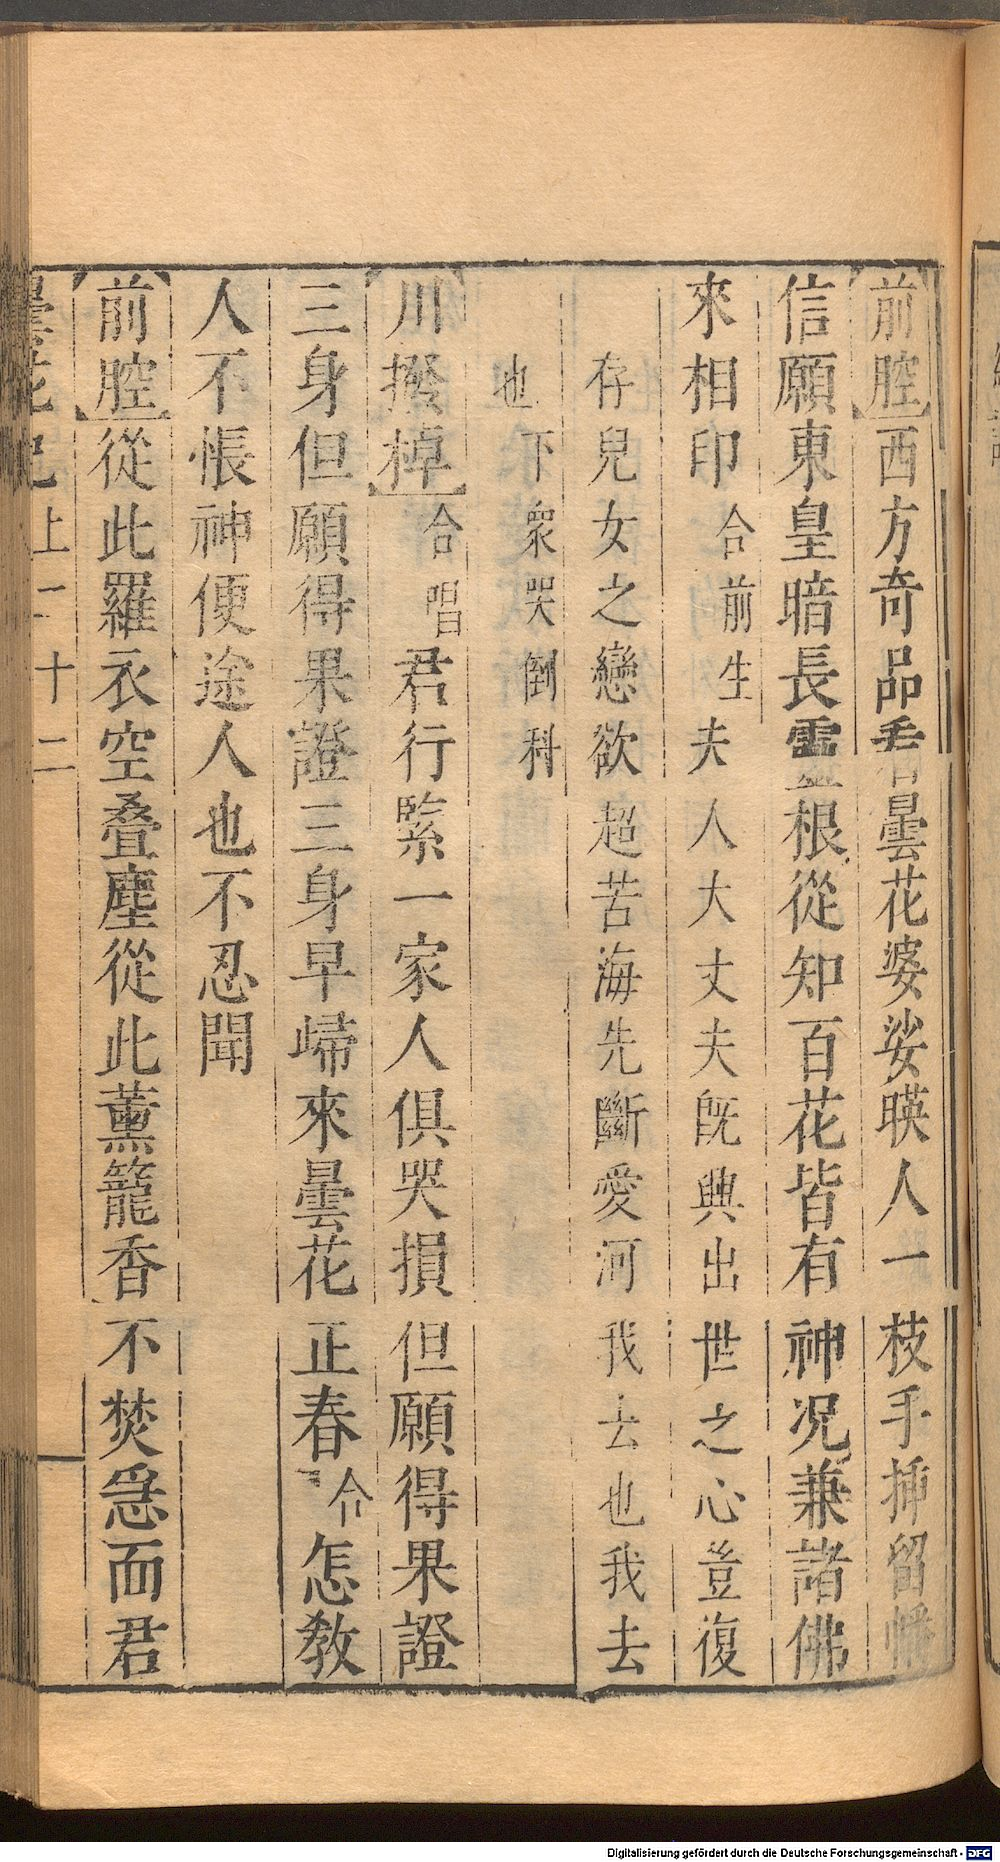 【前腔】西方奇品看曇花婆娑暎人一枝手揷留幡
信願東皇暗長靈根從知百花皆有神況兼諸佛
來相印合前生夫人大丈夫旣興出世之心豈復
存兒女之戀欲超苦海先斷愛河我去也我去
也下衆哭倒科
【川撥棹】合唱君行緊一家人俱哭損但願得果證
三身但願得果證三身早歸來曇花正春合怎教
人不悵神便途人也不忍聞
【前腔】從此羅衣空叠塵從此薰籠香不焚爲而君
曇花記上二十二
Digitalisierung gefördert durch die Deutsche Forschungsgemeinschaft - DFG